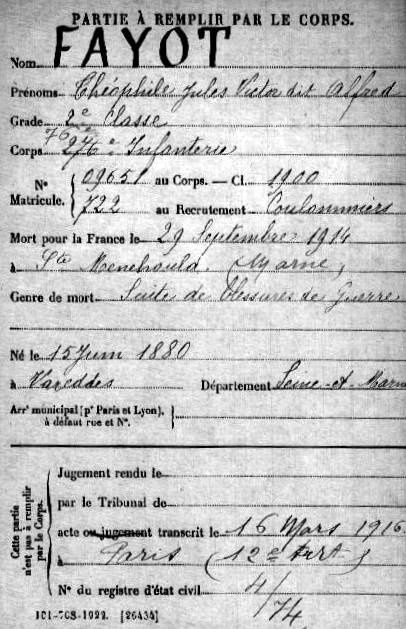 PARTIE À REMPLIR PAR LE CORPS.
Nom FAYOT
Prénoms Théophile Jules Victor dit Alfred
Grade 2e Classe
76e
Corps 276e Infanterie
No Matricule. { 09651 au Corps. — Cl. 1900
722 au Recrutement Coulommiers
Mort pour la France le 29 Septembre 1914
à Ste Menehould (Marne)
Genre de mort Suite de blessures de Guerre
Né le 15 Juin 1880
à Vareddes Département Seine-et-Marn
Arrt municipal (pr Paris et Lyon), à défaut rue et No.
Cette partie n'est pas à remplir par le Corps.
Jugement rendu le
par le Tribunal de
acte ou jugement transcrit le 16 Mars 1916
à Paris (12e Arrt)
No du registre d'état civil 4/74
101-708-1922. [26434]